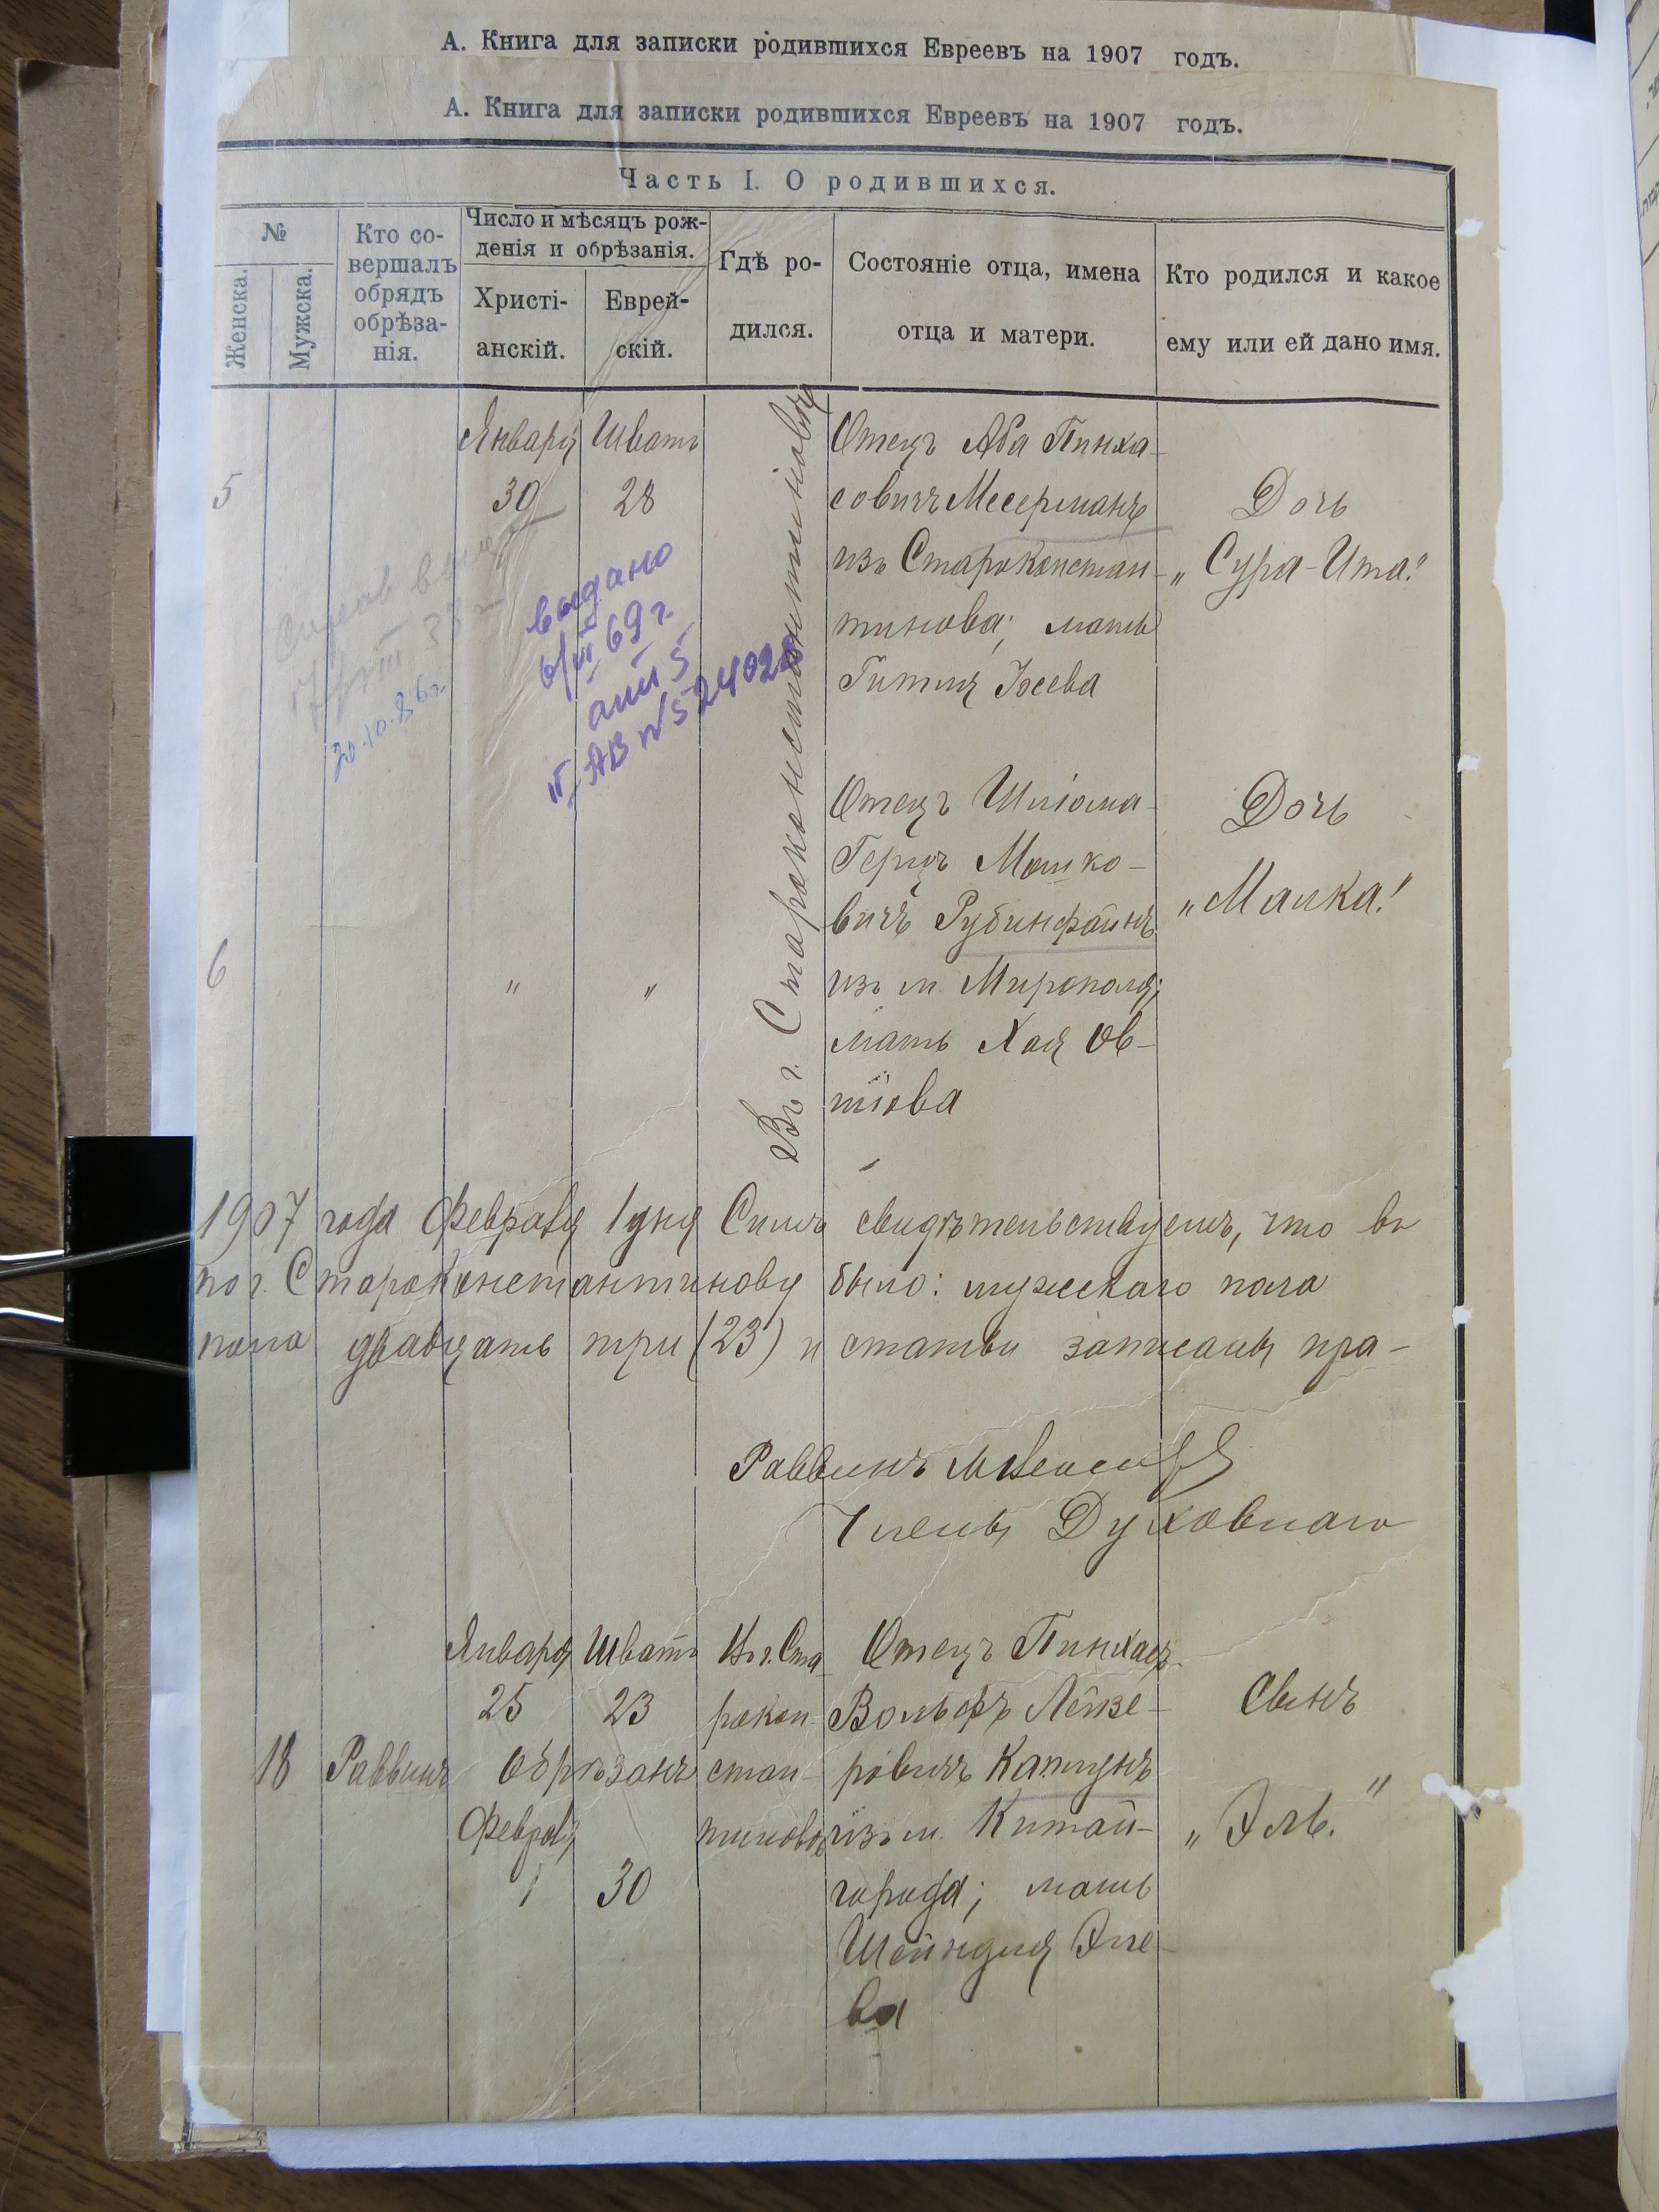 А. Книга для записки родившихся Евреевъ на 1907 годъ.
А. Книга для записки родившихся Евреевъ на 1907 годъ.
Часть I. О родившихся.
№
Женска.
Мужска.
Кто со-
вершалъ
обрядъ
обрѣза-
нія.
Число и мѣсяцъ рож-
денія и обрѣзанія.
Христі-
анскій.
Еврей-
скій.
Гдѣ ро-
дился.
Состояніе отца, имена
отца и матери.
Кто родился и какое
ему или ей дано имя.
5
Января
30
Шватъ
28
Въ г. Староконстантиновѣ
Отецъ Аба Пинха-
совичъ Месерманъ
изъ Староконстан-
тинова; мать
Гитля Іосева
Дочь
„Сура-Ита."
выдано
69 г.
20.10.86 г.
6
"
"
Отецъ Шліома-
Герцъ Мошко-
вичъ Рубинфайнъ
изъ м. Мирополя;
мать Хая Ов-
шіова
Дочь
„Малка."
1907 года Февраля 1 дня Симъ свидѣтельствуемъ, что въ
по г. Староконстантинову было: мужескаго пола
пола двадцать три (23) и статьи записаны пра-
Раввинъ
Члены Духовнаго
18
Раввинъ
Января
25
Шватъ
23
Обрѣзанъ
Февраля
1
30
Въ г. Ста
рокон-
стан-
тиновѣ
Отецъ Пинхасъ-
Вольфъ Лейзе-
ровичъ Капцунъ
изъ м. Китай-
города; мать
Шейндля Эле-
ва
Сынъ
„Эль."